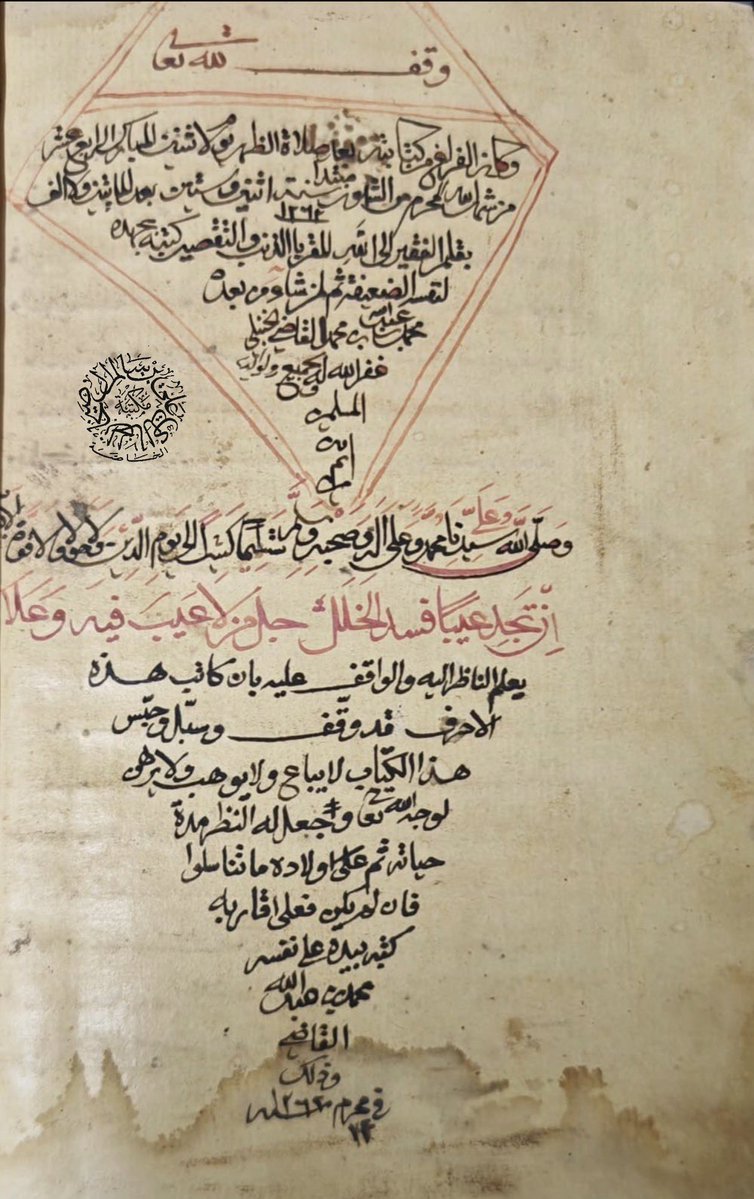 وقف لله تعالى
وكان الفراغ من كتابته بعد صلاة الظهر يوم الاثنين المبارك الرابع عشر
من شهر الله المحرم مبتدا سنة اثنين وستين بعد المائتين والف
١٢٦٢
بقلم الفقير الى الله المقر بالذنب والتقصير كتبه بيده
لنفسه الضعيفة ثم لمن شاء من بعده
محمد بن عبدالله بن محمد القاضي الحنبلي
غفر الله له ولوالديه وجميع
المسلمين
امين
امين
وصلى الله على سيدنا محمد وعلى اله وصحبه وسلم تسليما كثيرا الى يوم الدين ولا حول ولا قوة
إن تجد عيبا فسد الخللا جل من لا عيب فيه وعلا
يعلم الناظر اليه والواقف عليه بان كاتب هذه
الاحرف قد وقف وسبل وحبس
هذا الكتاب لا يباع ولا يوهب ولا يرهن
لوجه الله تعالى وجعل له النظر مدة
حياته ثم على اولاده ما تناسلوا
فان لم يكن فعلى اقاربه
كتبه بيده على نفسه
محمد بن عبدالله
القاضي
وذلك
في محرم ١٢٦٢